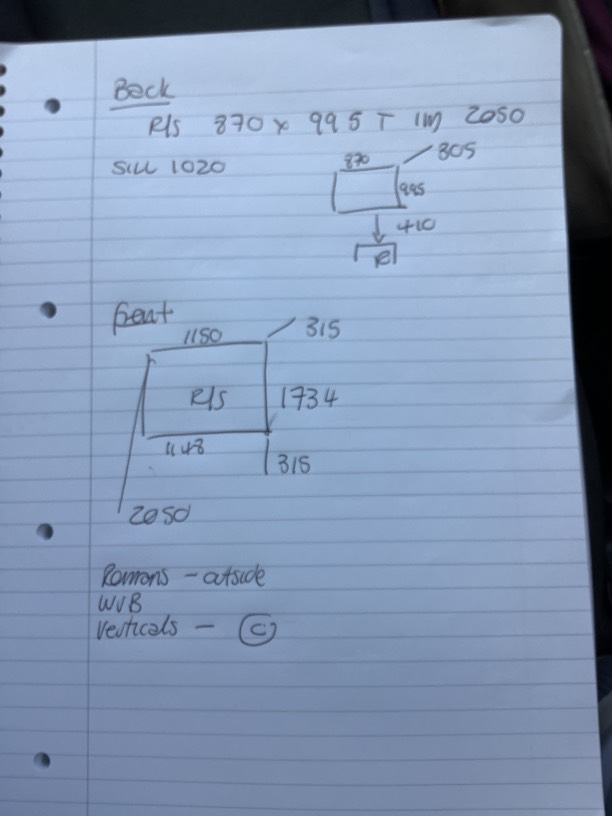 Back
R/S 870 x 995 T 1M 2050
Sill 1020
870
805
995
410
R
front
1150
315
R/S
1734
1148
315
2050
Romans - outside
WVB
Verticals - C